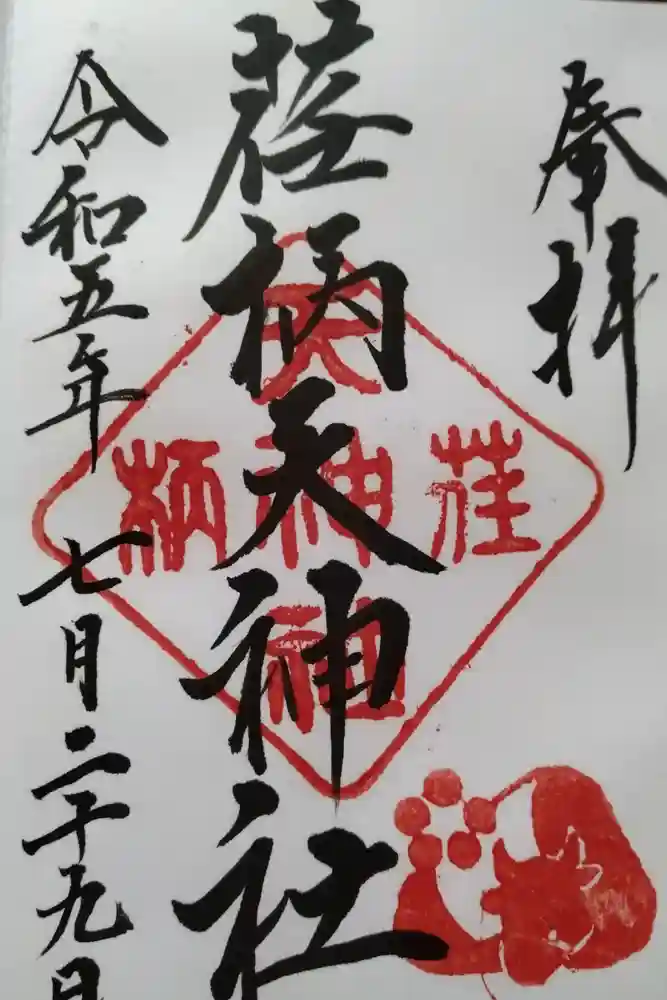 奉拝
荏柄天神社
令和五年 七月二十九日
天
荏神柄
社